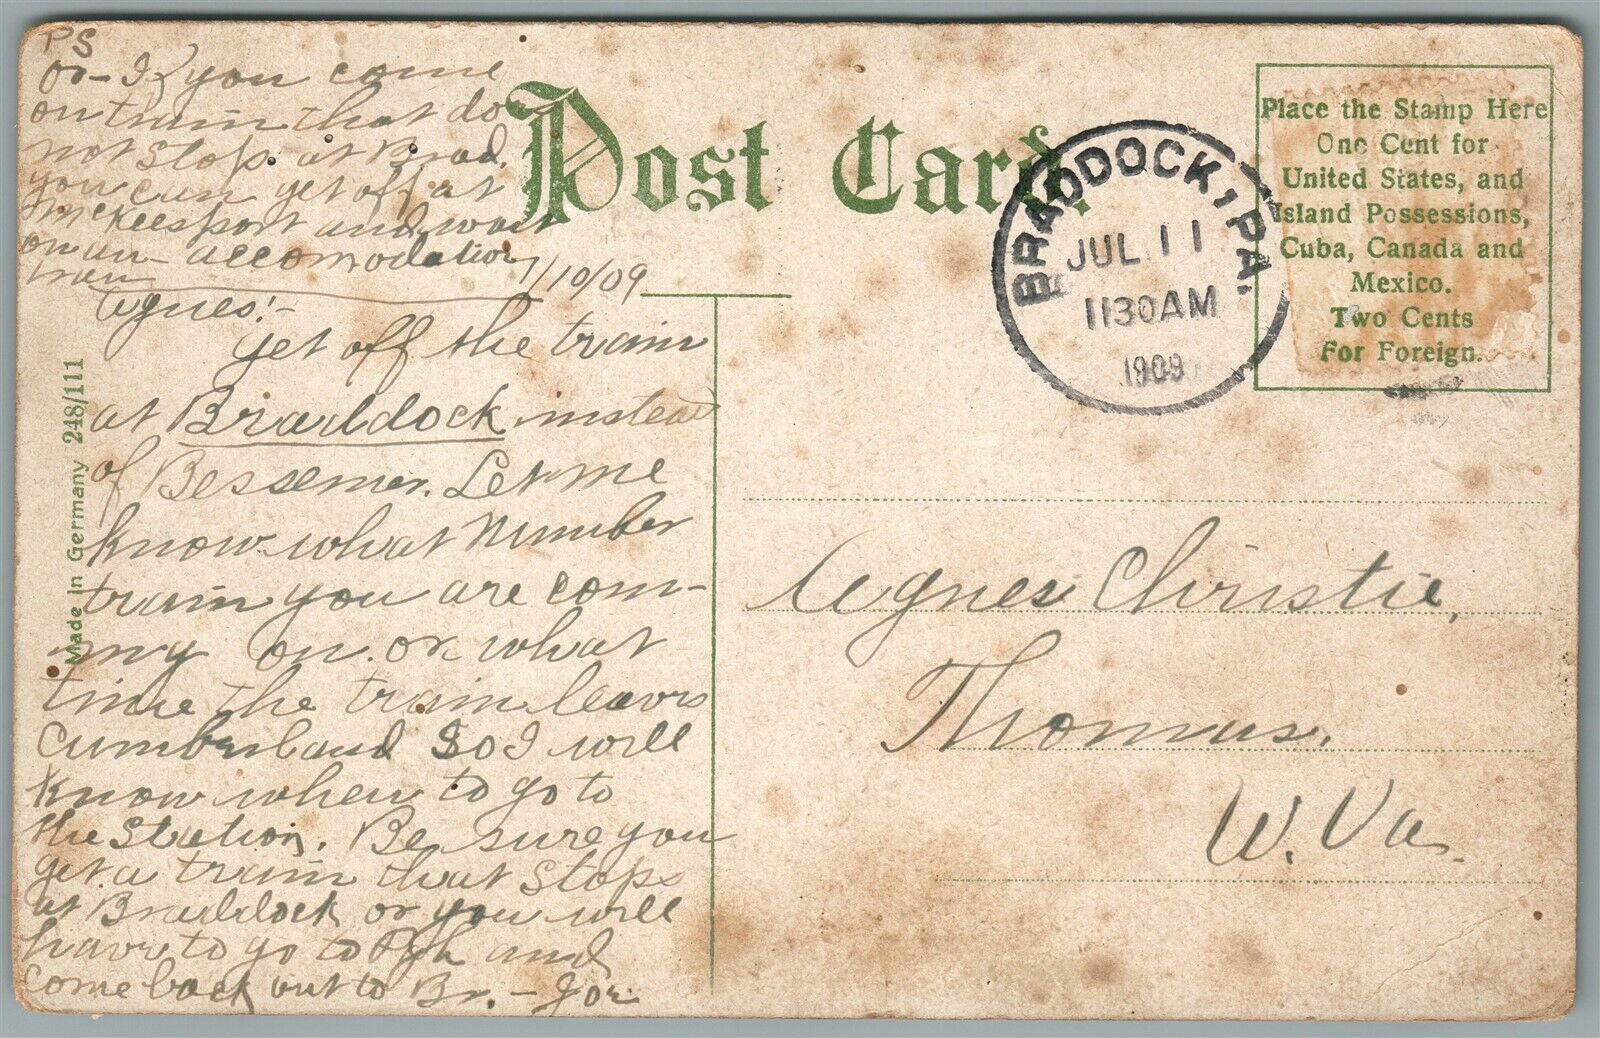 PS
or - If you come
on train that does
not stop at Brad.
you can get off at
McKeesport and wait
on an accomodation
train
7/10/09
Agnes:-
get off the train
at Braddock instead
of Bessemer. Let me
know what number
train you are com-
ing on or what
time the train leaves
Cumberland so I will
know when to go to
the station. Be sure you
get a train that stops
at Braddock or you will
have to go to Pgh and
come back out to Br. - Joe
Made in Germany 248/111
Post Card
BRADDOCK, PA.
JUL 11
1130AM
1909
Place the Stamp Here
One Cent for
United States, and
Island Possessions,
Cuba, Canada and
Mexico.
Two Cents
For Foreign.
Agnes Christie,
Thomas.
W. Va.